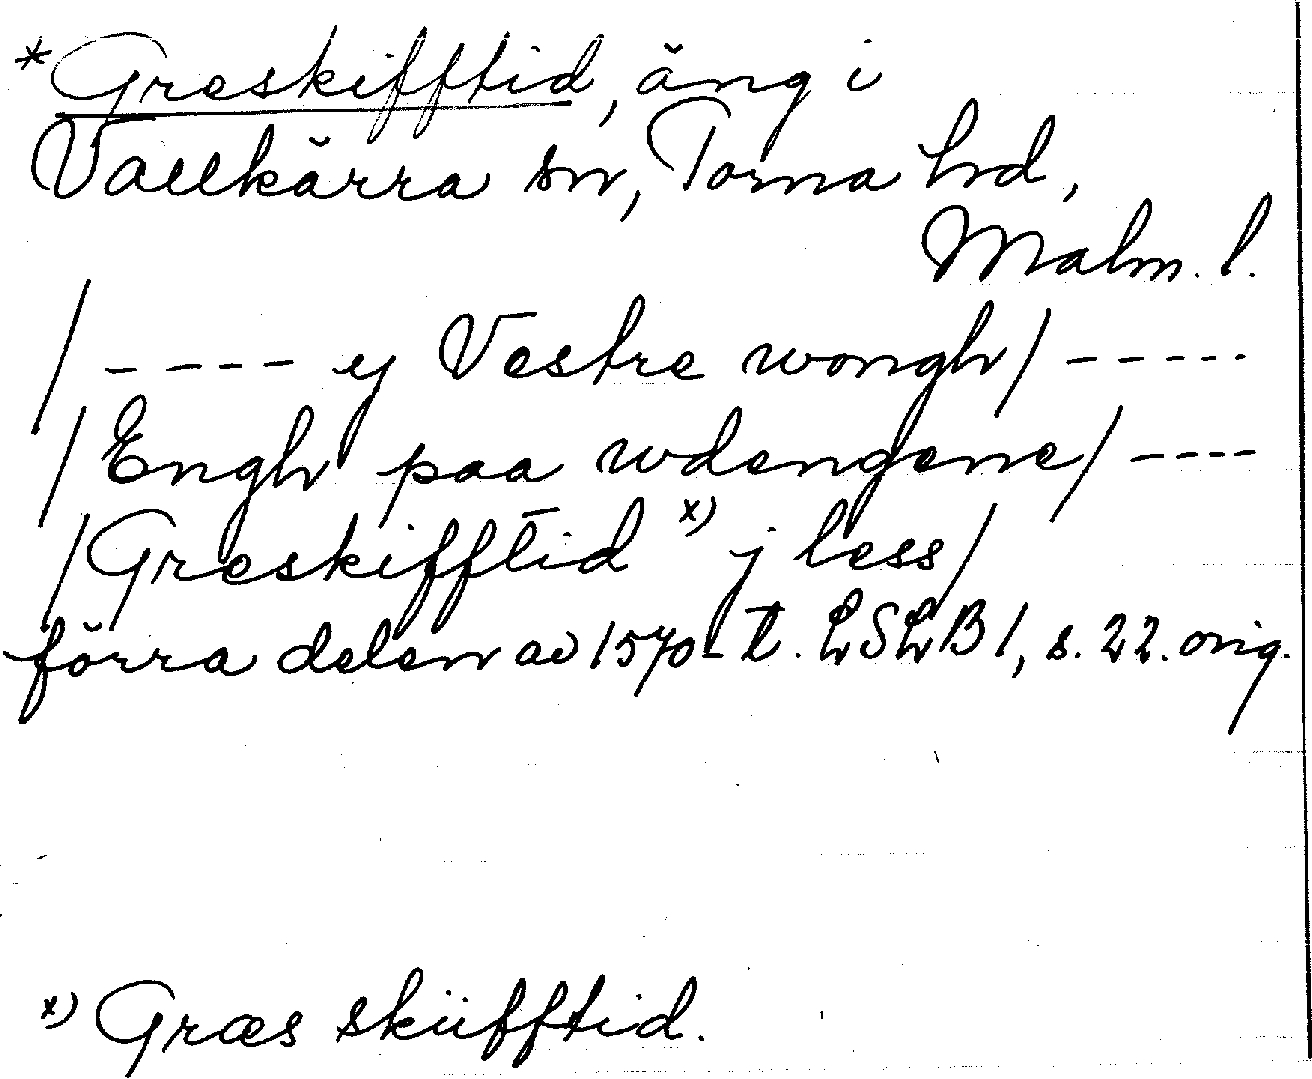 *Greskifftid, äng i
Vallkärra sn, Torna hd,
Malm. l.
/ - - - - y Vestre wongh/ - - - - -
/Engh paa wdengene/ - - - -
/Greskifftid x) j less/
förra delen av 1570-t. LSLB 1, s. 22. orig.
x) Græs sküfftid.